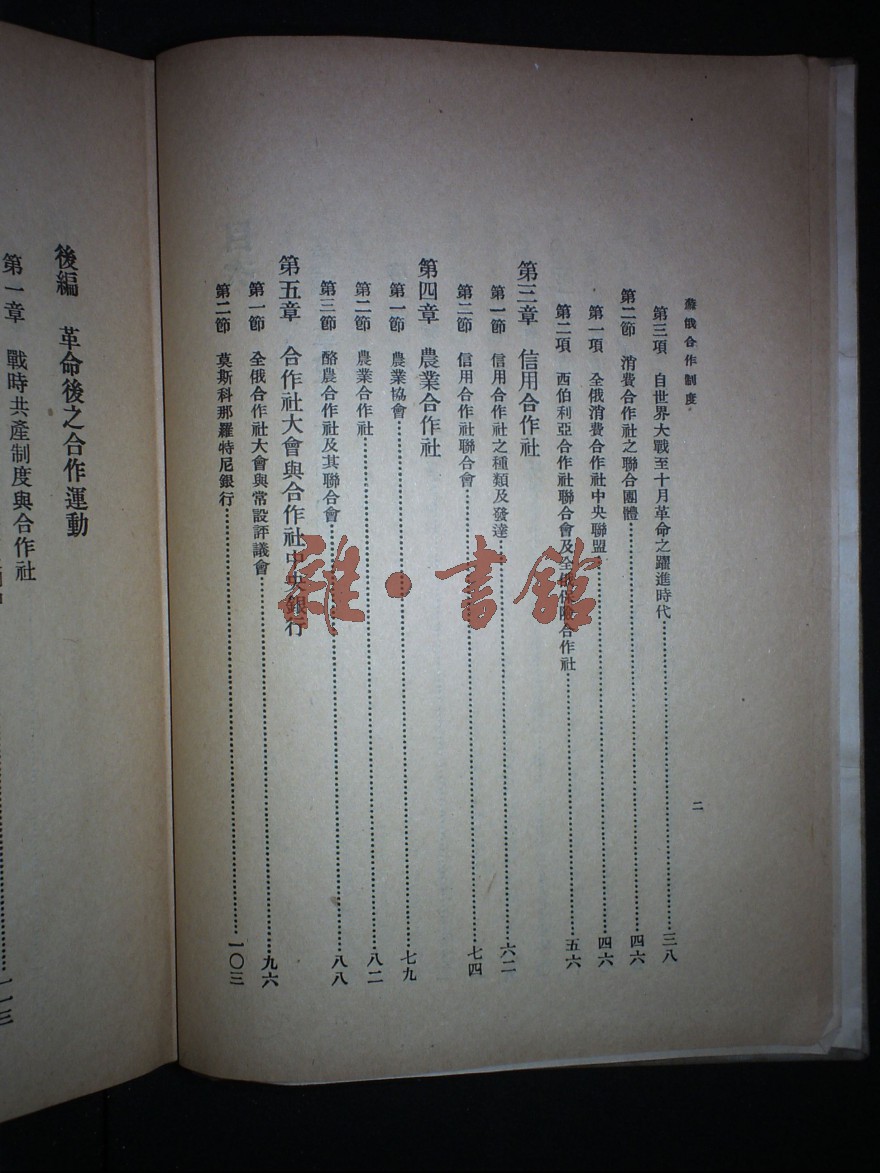 蘇俄合作制度
二
第三項 自世界大戰至十月革命之躍進時代……三八
第二節 消費合作社之聯合團體……四六
第一項 全俄消費合作社中央聯盟……四六
第二項 西伯利亞合作社聯合會及全俄保險合作社……五六
第三章 信用合作社
第一節 信用合作社之種類及發達……六二
第二節 信用合作社聯合會……七四
第四章 農業合作社
第一節 農業協會……七九
第二節 農業合作社……八二
第三節 酪農合作社及其聯合會……八八
第五章 合作社大會與合作社中央銀行
第一節 全俄合作社大會與常設評議會……九六
第二節 莫斯科那羅特尼銀行……一〇三
後編 革命後之合作運動
第一章 戰時共產制度與合作社
一一三
雜·書館